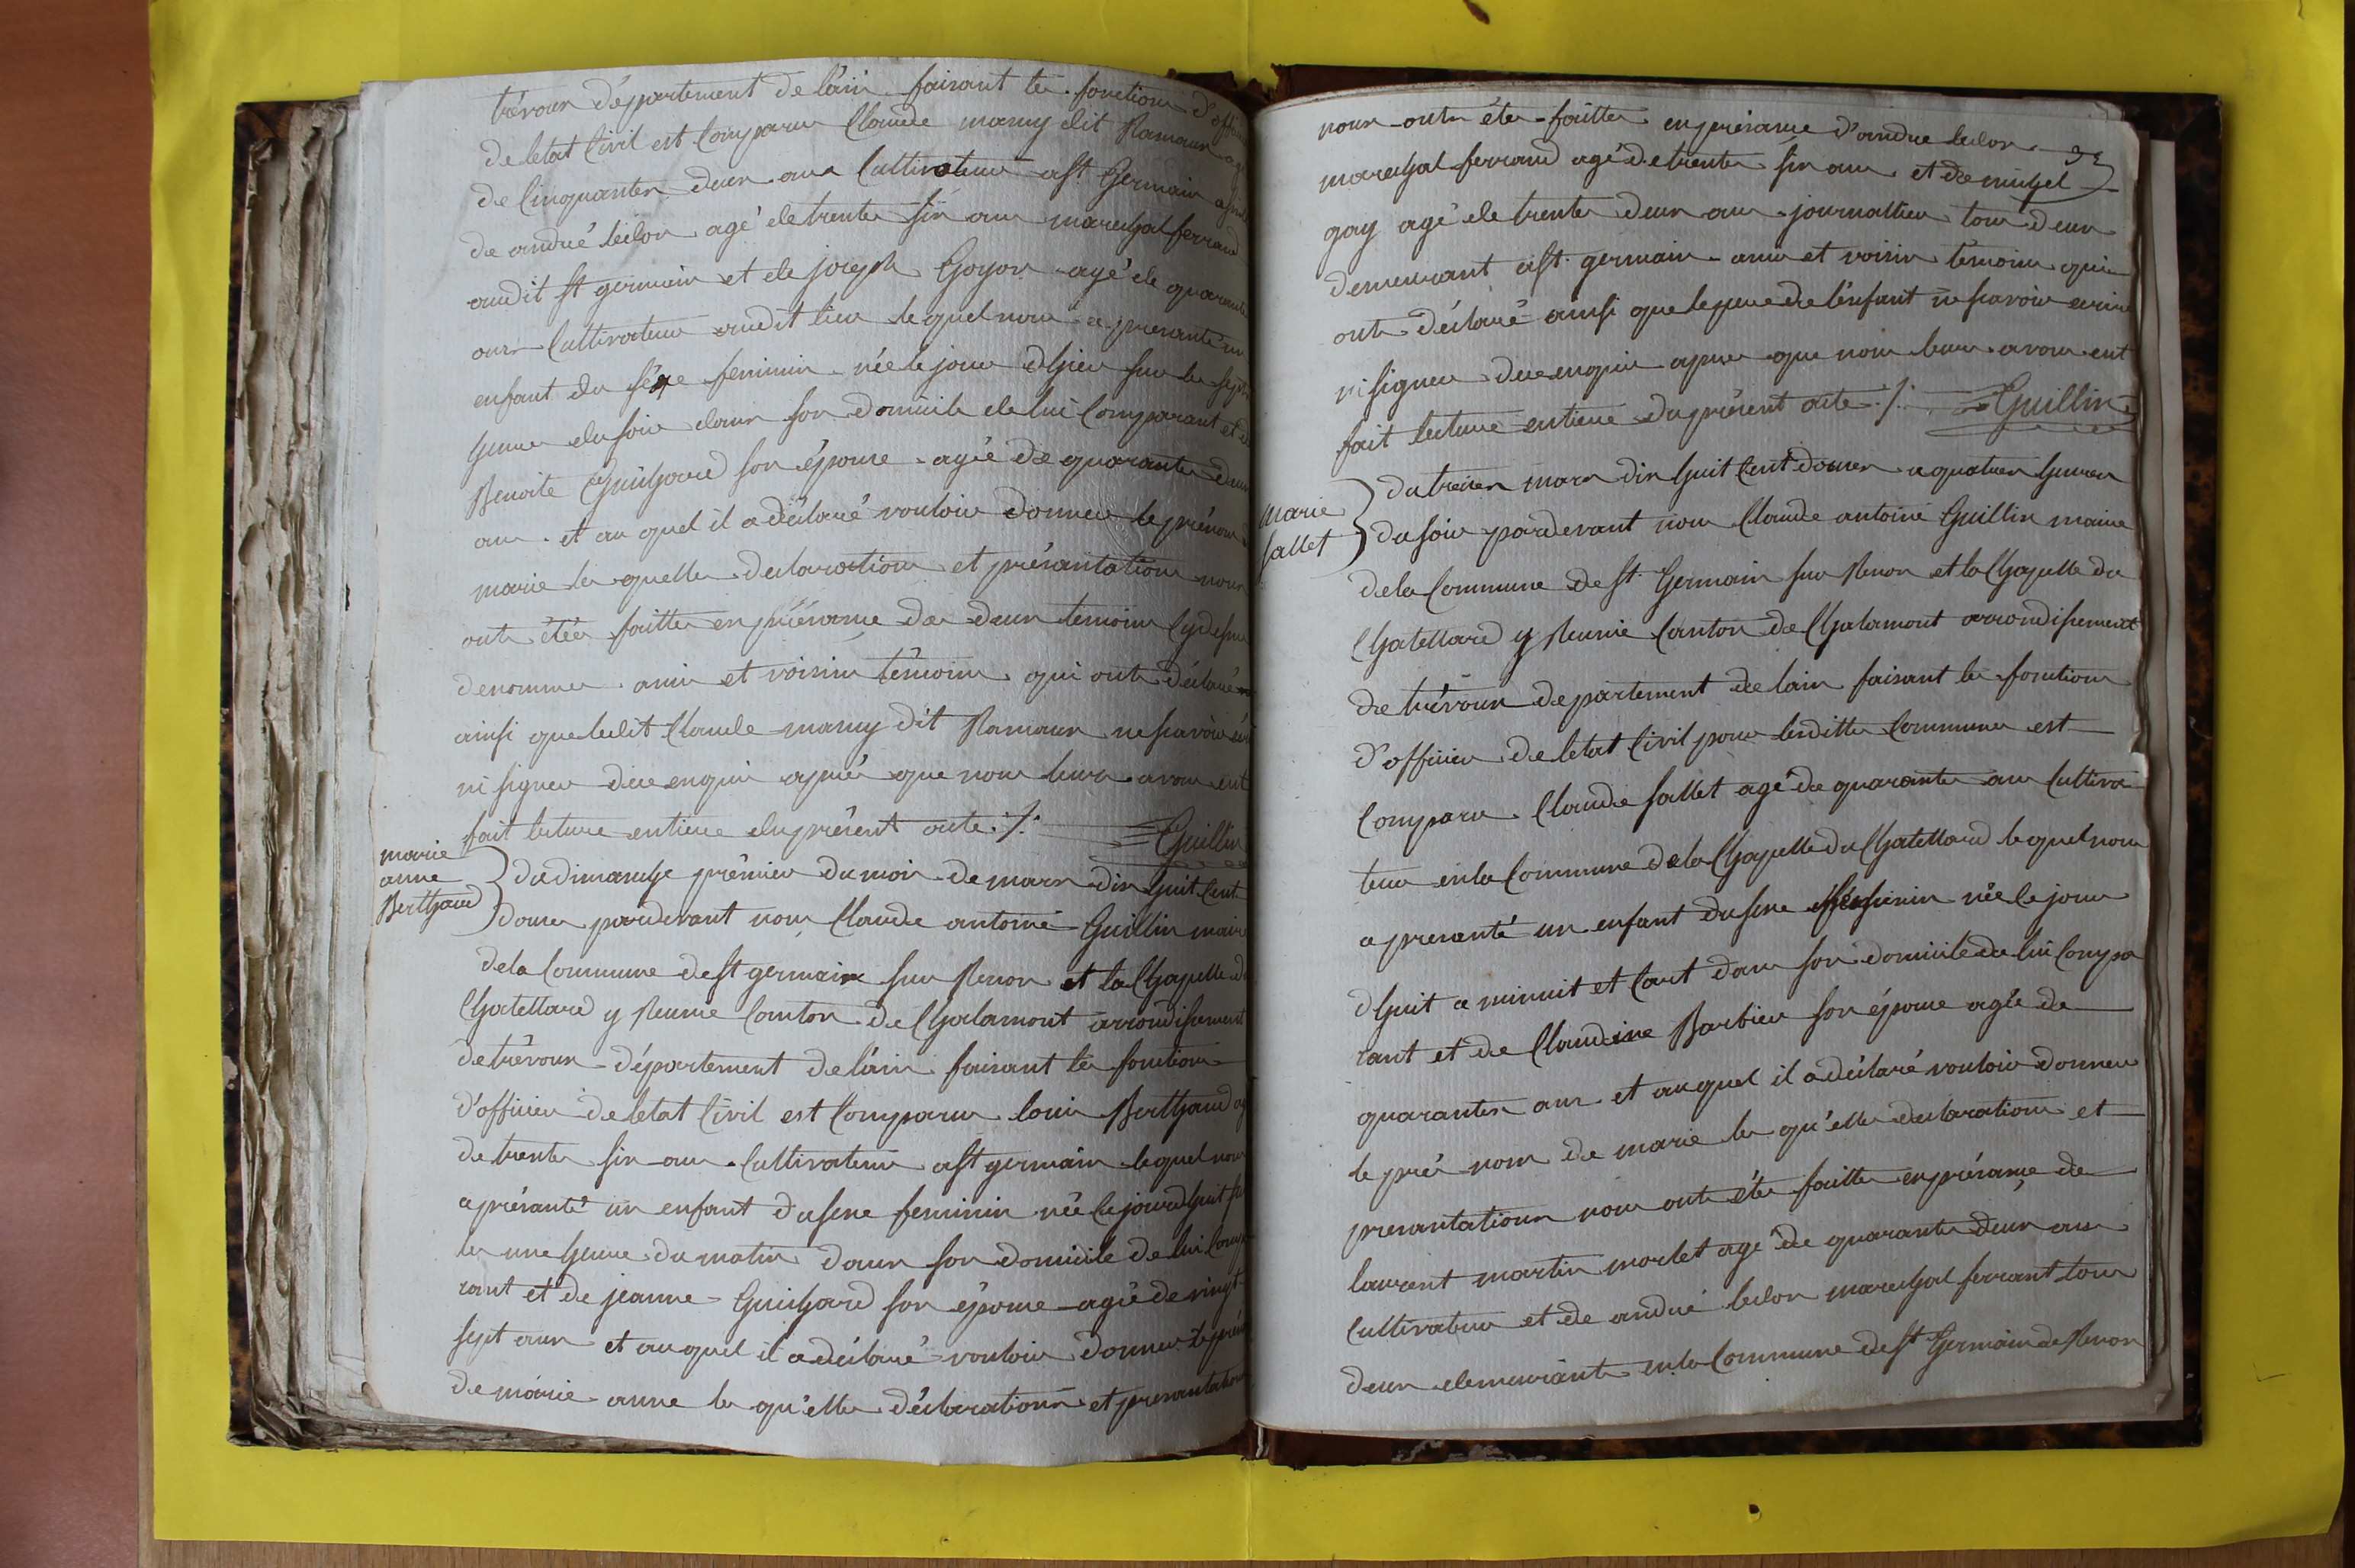 trévoux département de lain faisant les fonctions d'offi
de letat Civil est Comparu Claude mamy dit Ramaux
de Cinquantes deux ans Cultivateur a st Germain
de andré leclos agé de trente six ans marechal ferrand
audit st germain et de joseph Goyon agé de quarante
ans Cultivateur audit lieu lequel nous a presanté un
enfant du séxe feminin née le jour dhier sur les sept
heures du soir dans son domicile de lui Comparant et de
Benoite Guichard son épouse agée de quarantes deux
ans et au quel il a déclaré vouloir donner le prénom
marie les quelles declarations et présantations nous
ont étées faittes en présance de deux temoins Cydessu
denommes amis et voisins témoins qui ont déclaré
ainsi que ledit Claude mamy dit Ramaux ne scavoir
ni signer de ce enquis aprés que nous leurs avons eut
fait lecture entiere du présent acte ./. Guillin
marie
anne
Berthaud
du dimanche prémier du mois de mars dix huit Cent
douze pardevant nous Claude antoine Guillin maire
de la Commune de st germain sur Renon et la Chapelle du
Chatellard y Reunie Canton de Chalamont arrondissement
de trévoux département de lain faisant les fonctions
d'officier de letat Civil est Comparu louis Berthaud
de trente six ans Cultivateur a st germain lequel nous
a présanté un enfant du sexe feminin née cejourdhuit
les une heure du matin dans son domicile de lui Compa
rant et de jeanne Guichard son épouse agée de vingt
sept ans et au quel il a déclaré vouloir donner le prén
de marie anne les qu'elles déclarations et presantations
nous ont étés faittes en présance d'andré leclos 32
marechal ferrand agé de trente six ans et de michel
gay agé de trente deux ans journallier tous deux
demeurant a st germain amis et voisins témoins qui
ont déclaré ainsi que le pere de l'enfant ne scavoir ecrire
ni signer de ce enquis apres que nous leurs avons eut
fait lecture entiere du présent acte ./. Guillin
marie
fallet
du treize mars dix huit Cent douze a quatres heures
du soir pardevant nous Claude antoine Guillin maire
de la Commune de st Germain sur Renon et la Chapelle du
Chatellard y Reunie Canton de Chalamont arrondissement
de trévoux departement de lain faisant les fonctions
d'officier de letat Civil pour lesdittes Communes est
Comparu Claude fallet agé de quarante ans Cultiva
teur en la Commune de la Chapelle du Chatellard lequel nous
a presanté un enfant du sexe feminin née le jour
dhuit a minuit et Cart dans son domicile de lui Compa
rant et de Claudine Barbier son épouse agée de
quarantes ans et au quel il a déclaré vouloir donner
le pré nom de marie les qu'elles declarations et
presantations nous ont étés faittes en présance de
laurent martin morlet agé de quarante deux ans
Cultivateur et de andré leclos marechal ferrant tous
deux demeurants en la Commune de st Germain de Renon